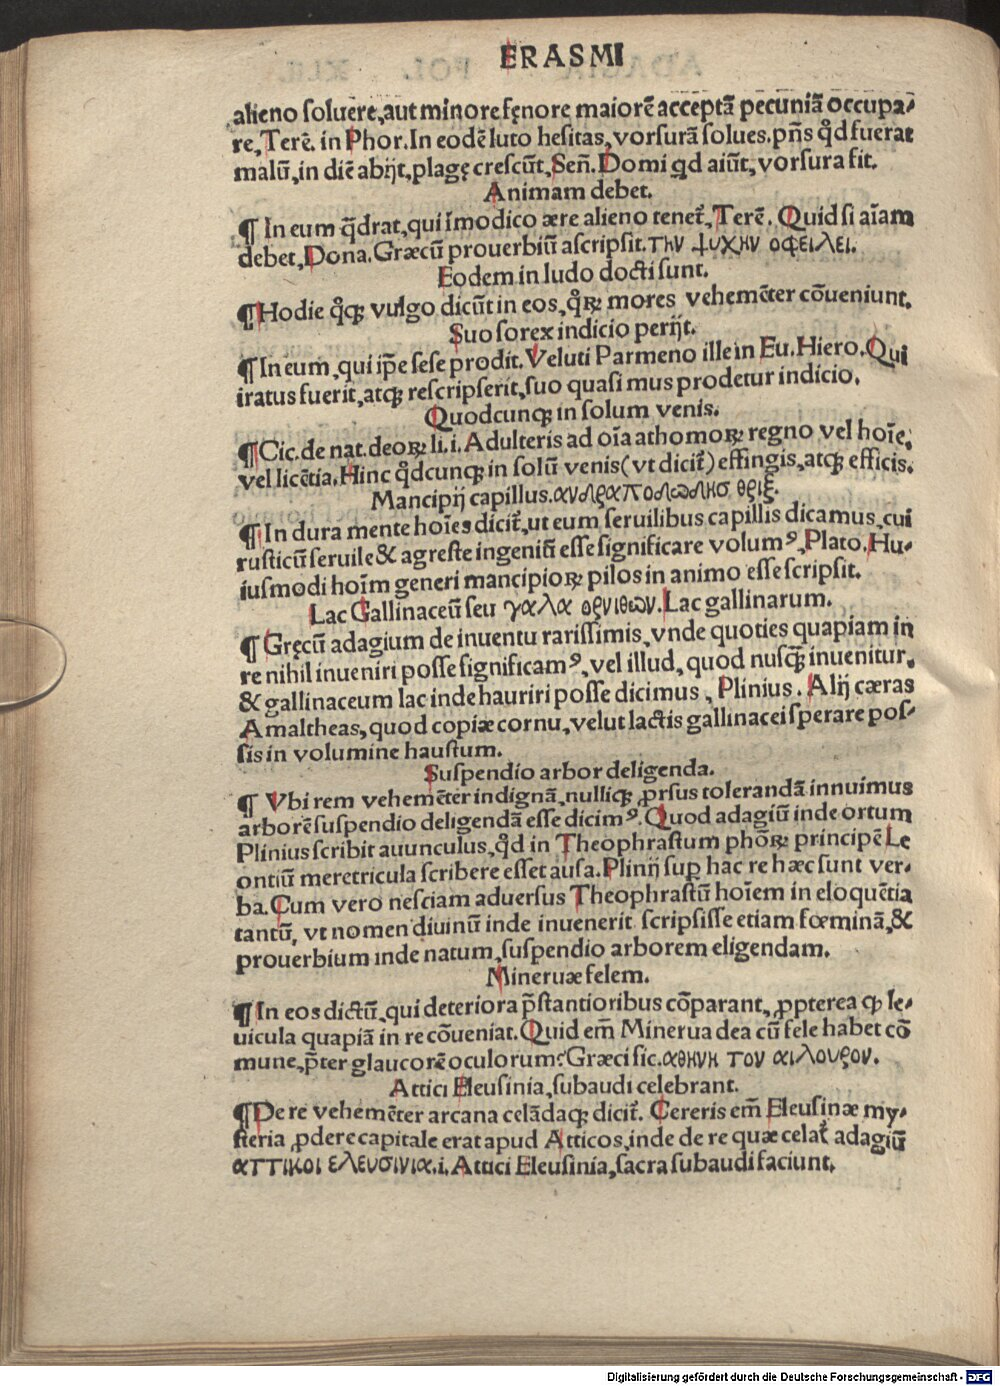 ERASMI
alieno soluere, aut minore fęnore maiorē acceptā pecuniā occupa-
re, Terē. in Phor. In eodē luto hesitas, vorsurā solues. pn̄s qd̓ fuerat
malū, in diē abijt, plagę crescūt, Sen̄. Domi qd aiūt, vorsura fit.
Animam debet.
¶ In eum q̄drat, qui īmodico ære alieno tenet᷑, Terē. Quid si aīam
debet, Dona. Græcū prouerbiū ascripsit. την ψυχην οφειλει.
Eodem in ludo docti sunt.
¶ Hodie qͦqꝫ vulgo dicūt in eos, qͦꝝ mores vehemēter cōueniunt.
Suo sorex indicio perijt.
¶ In eum, qui ip̄e sese prodit. Veluti Parmeno ille in Eu. Hiero. Qui
iratus fuerit, atqꝫ rescripserit, suo quasi mus prodetur indicio.
Quodcunqꝫ in solum venis.
¶ Cic. de nat. deoꝝ li. i. Adulteris ad oīa athomoꝝ regno vel hoīe,
vel licētia. Hinc qd̓cunqꝫ in solū venis (vt dicit᷑) effingis, atqꝫ efficis.
Mancipij capillus. ανδραποδωδησ θριξ.
¶ In dura mente hoīes dicit᷑, ut eum seruilibus capillis dicamus, cui
rusticū seruile & agreste ingeniū esse significare volumꝰ, Plato. Hu-
iusmodi hoīm generi mancipioꝝ pilos in animo esse scripsit.
Lac Gallinaceū seu γαλα ορνιθων. Lac gallinarum.
¶ Gręcū adagium de inuentu rarissimis, vnde quoties quapiam in
re nihil inueniri posse significamꝰ, vel illud, quod nusq̄ inuenitur,
& gallinaceum lac inde hauriri posse dicimus, Plinius. Alij cæras
Amaltheas, quod copiæ cornu, velut lactis gallinacei sperare pos-
sis in volumine haustum.
Suspendio arbor deligenda.
¶ Vbi rem vehemēter indignā, nulliqꝫ ꝓrsus tolerandā innuimus
arborē suspendio deligendā esse dicimꝰ. Quod adagiū inde ortum
Plinius scribit auunculus, qd̓ in Theophrastum phōꝝ principē Le
ontiū meretricula scribere esset ausa. Plinij suꝑ hac re hæc sunt ver-
ba. Cum vero nesciam aduersus Theophrastū hoīem in eloquētia
tantū, vt nomen diuinū inde inuenerit scripsisse etiam fœminā, &
prouerbium inde natum, suspendio arborem eligendam.
Mineruæ felem.
¶ In eos dictū, qui deteriora p̄stantioribus cōparant, ꝓpterea ꝙ le-
uicula quapiā in re cōueniat. Quid em̄ Minerua dea cū fele habet cō
mune, p̄ter glaucorē oculorum? Græci sic. αθηνη τον αιλουρον.
Attici Eleusinia, subaudi celebrant.
¶ De re vehemēter arcana celādaqꝫ dicit᷑. Cereris em̄ Eleusinæ my-
steria ꝓdere capitale erat apud Atticos, inde de re quæ celat᷑ adagiū
αττικοι ελευσινια. i. Attici Eleusinia, sacra subaudi faciunt.
Digitalisierung gefördert durch die Deutsche Forschungsgemeinschaft - DFG